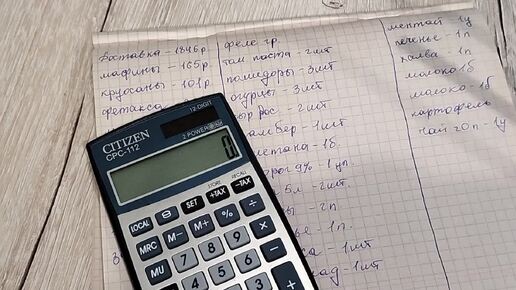 доставка - 1846 р
мафины - 165 р
круосаны - 101 р
фетакса
филе гр
том паста - 2 шт
помидоры - 3 шт
огурцы - 3 шт
рос - 2 шт
мбер - 1 шт
метана - 1 б.
рог 9% - 1 уп.
5 л - 2 шт.
ы - 2 п
ье - 1 п.
а - 1 шт
ад - 1 шт
ментай - 1 у
печенье - 1 п
халва - 1 п
молоко 1 б
молоко - 1 б
картофель
чай 20 п - 1 у
CITIZEN
CPC-112
12-DIGIT
2 POWER
0.
STORE
RECALL
LOCAL
SET
+TAX
-TAX
MRC
M-
M+
%
÷
MU
7
8
9
4
5
6
1
2
3
+